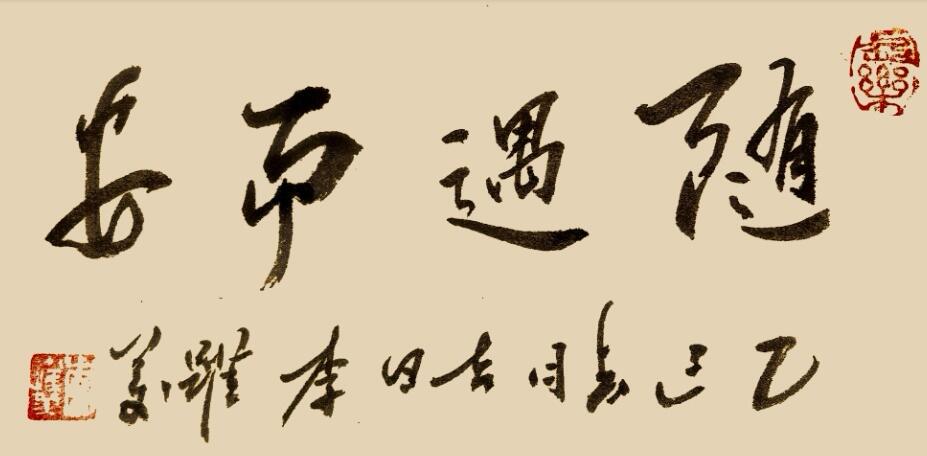 随遇而安
乙巳春月吉日李躍